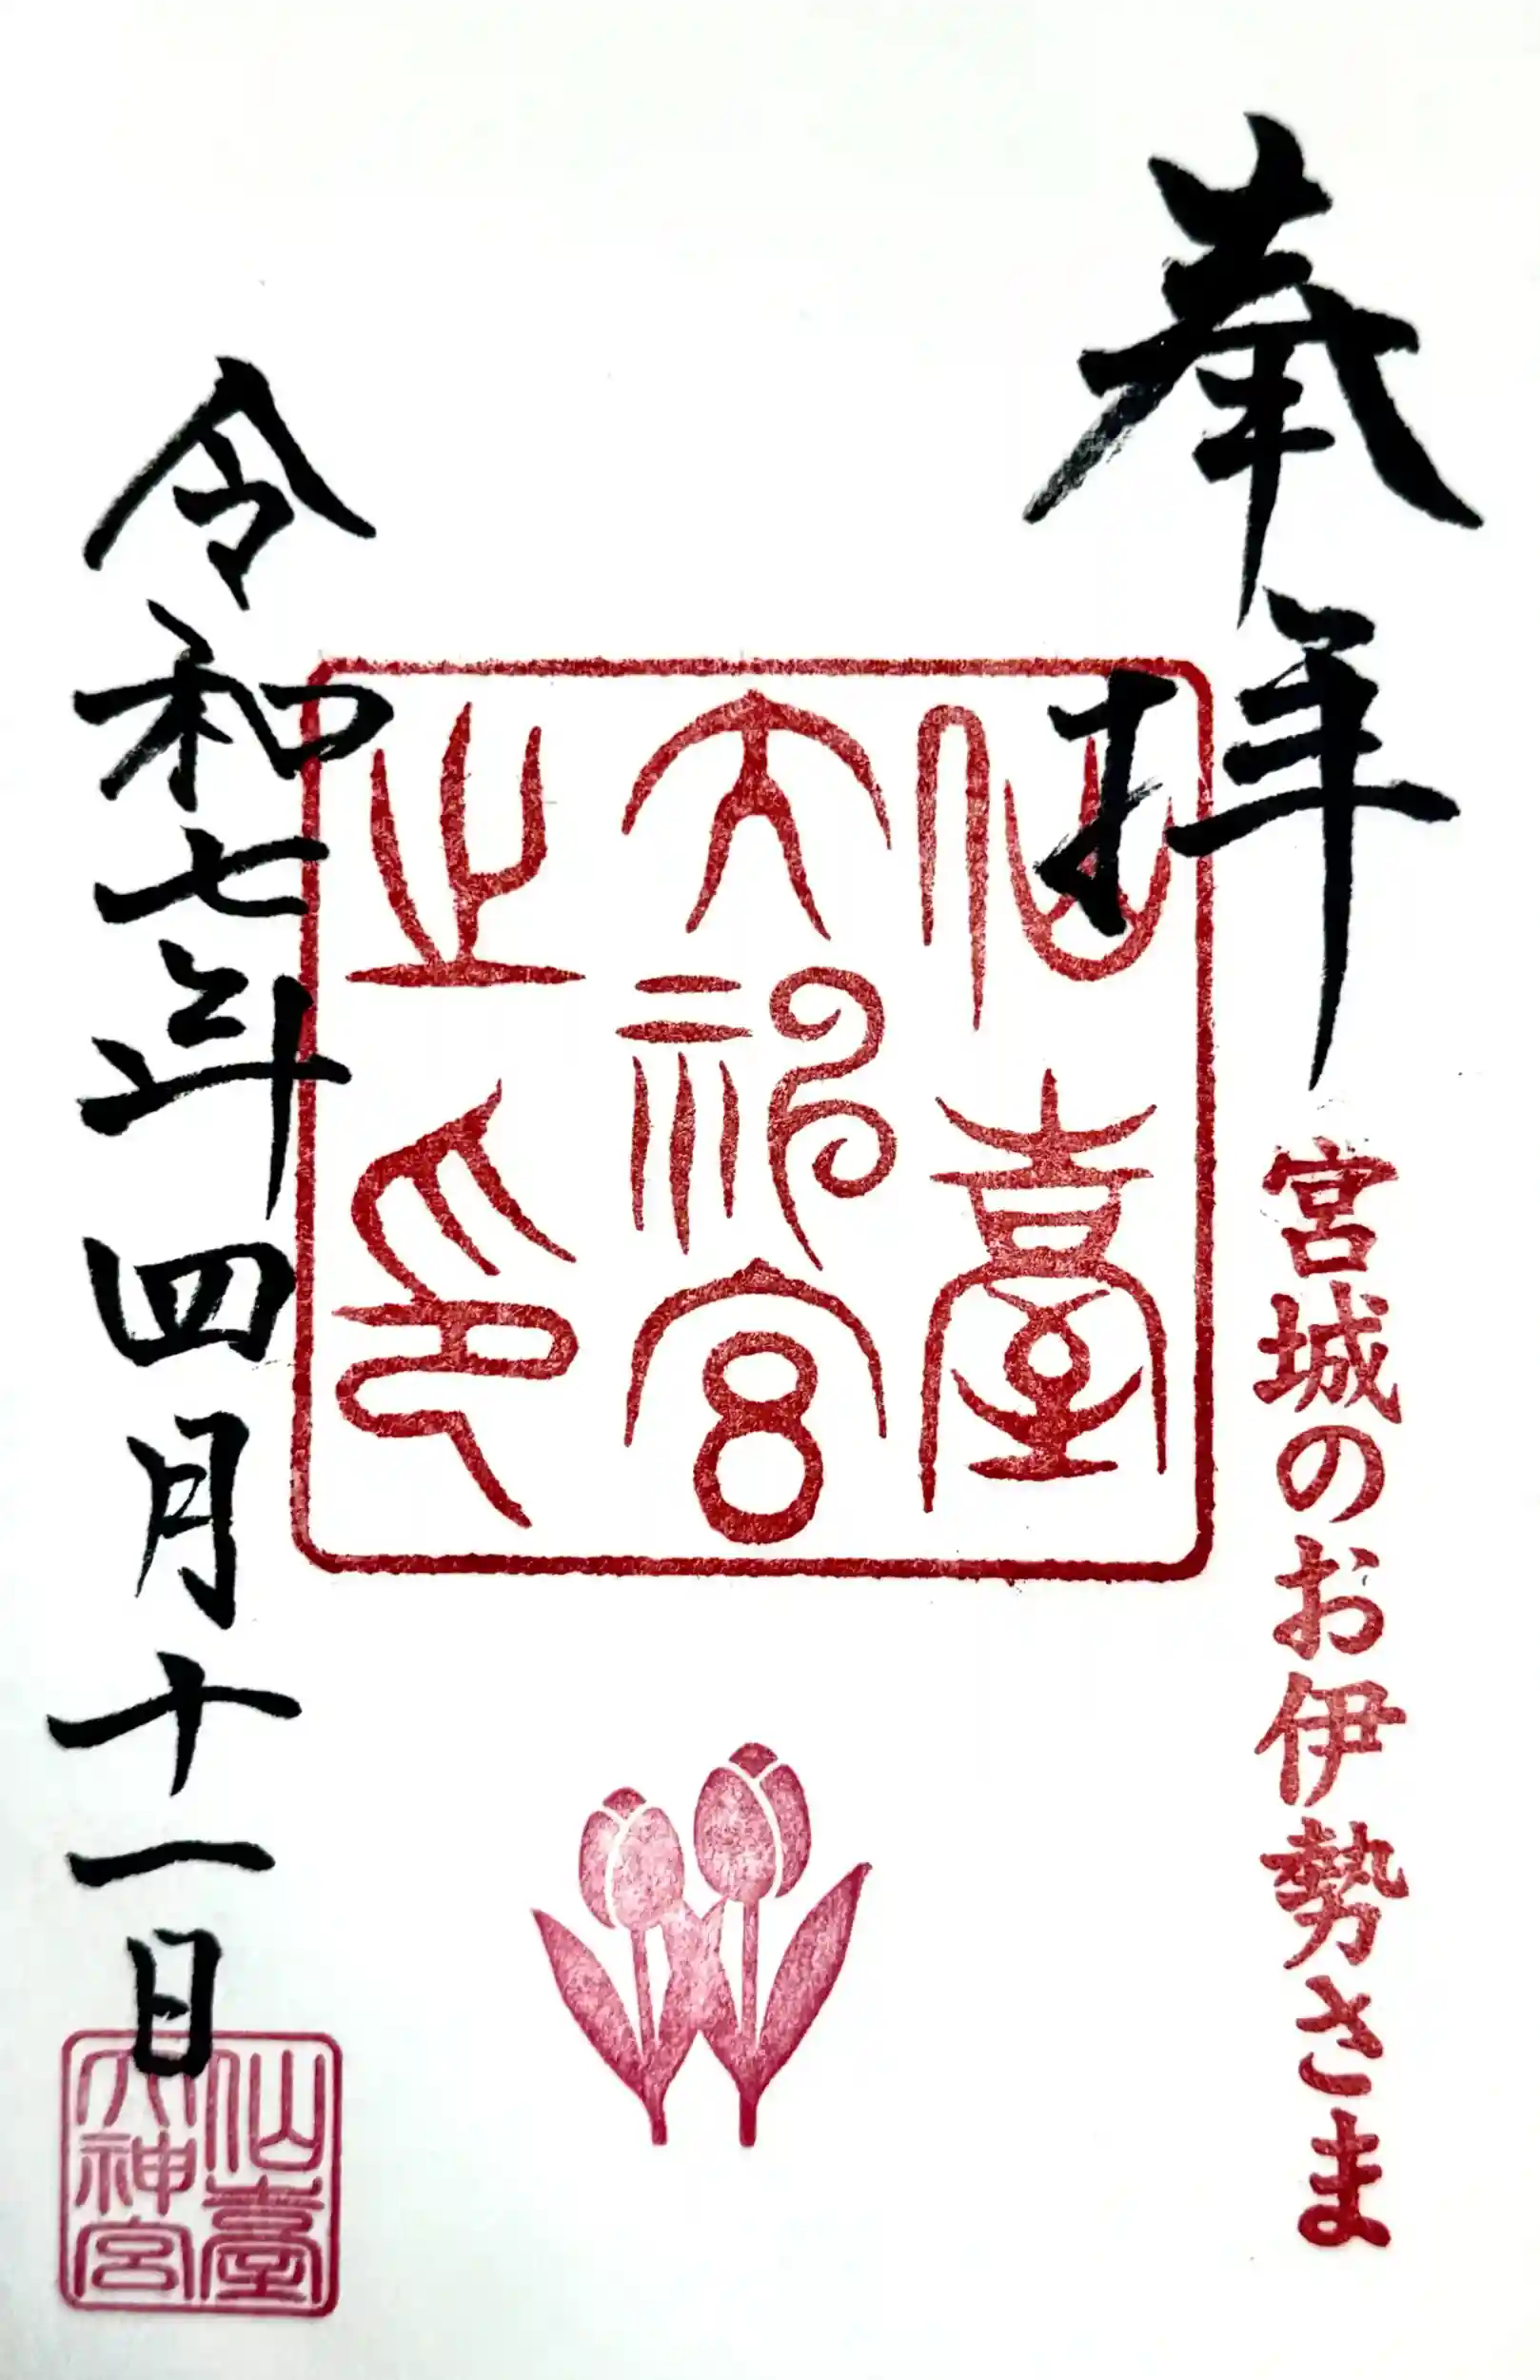 奉拝
宮城のお伊勢さま
仙臺
大神宮
之印
令和七年四月十一日
仙臺
大神宮